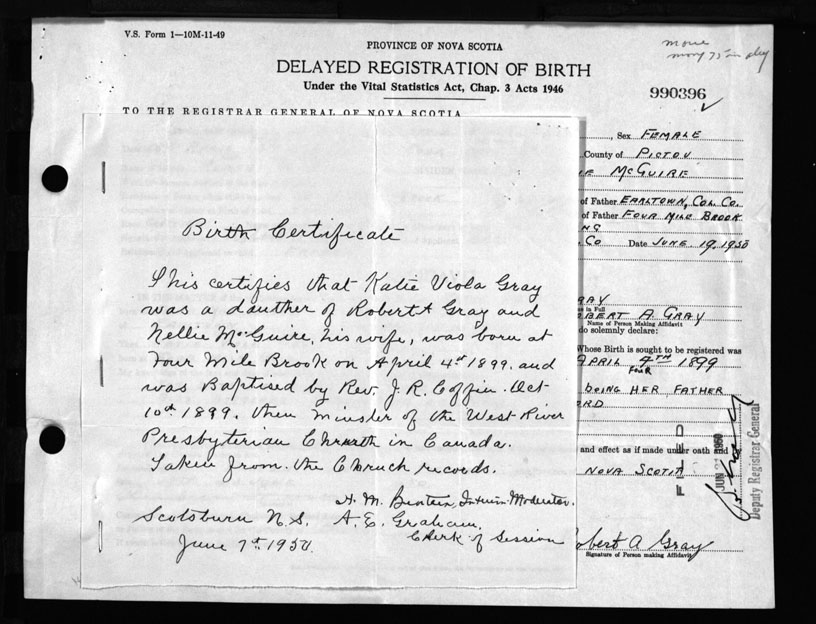 V.S. Form 1—10M-11-49
PROVINCE OF NOVA SCOTIA
DELAYED REGISTRATION OF BIRTH
Under the Vital Statistics Act, Chap. 3 Acts 1946
990396
TO THE REGISTRAR GENERAL OF NOVA SCOTIA
, Sex FEMALE
County of PICTOU
IE McGUIRE
of Father EARLTOWN, COL. CO.
of Father FOUR MILE BROOK
NG
. CO Date JUNE 19, 1950
RAY
me in Full
OBERT A GRAY
Name of Person Making Affidavit
do solemnly declare:
Whose Birth is sought to be registered was
APRIL 4TH 1899
FOUR
BEING HER FATHER
ORD
and effect as if made under oath and
NOVA SCOTIA
FILED
JUN 1950
Deputy Registrar General
obert A Gray
Signature of Person making Affidavit
Birth Certificate
This certifies that Katie Viola Gray
was a dauther of Robert A Gray and
Nellie McGuire, his wife, was born at
Four Mile Brook on April 4th 1899. and
was Baptised by Rev. J. R. Coffin Oct
10th 1899. then minster of the West River
Presbyterian in Canada.
Taken from the Chruch records.
H. M. Interim Moderator.
Scotsburn N.S. A. E. Graham.
Clerk of Session
June 7th 1950.